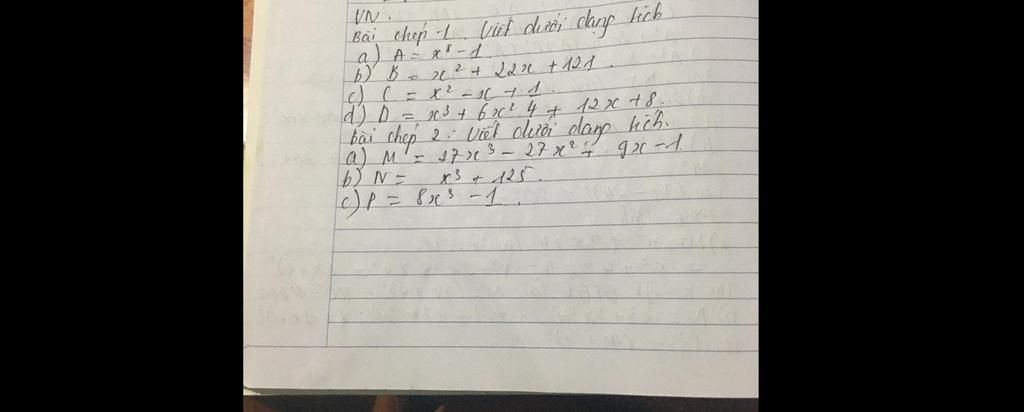 VN.
Bài chép 1. Viết dưới dạng tích
a) A = x⁸ - 1
b) B = x² + 22x + 121.
c) C = x² - x + 1.
d) D = x³ + 6x² 4 + 12x + 8.
Bài chép 2: Viết dưới dạng tích.
a) M = 27x³ - 27x² + 9x - 1
b) N = x³ + 125.
c) P = 8x³ - 1.